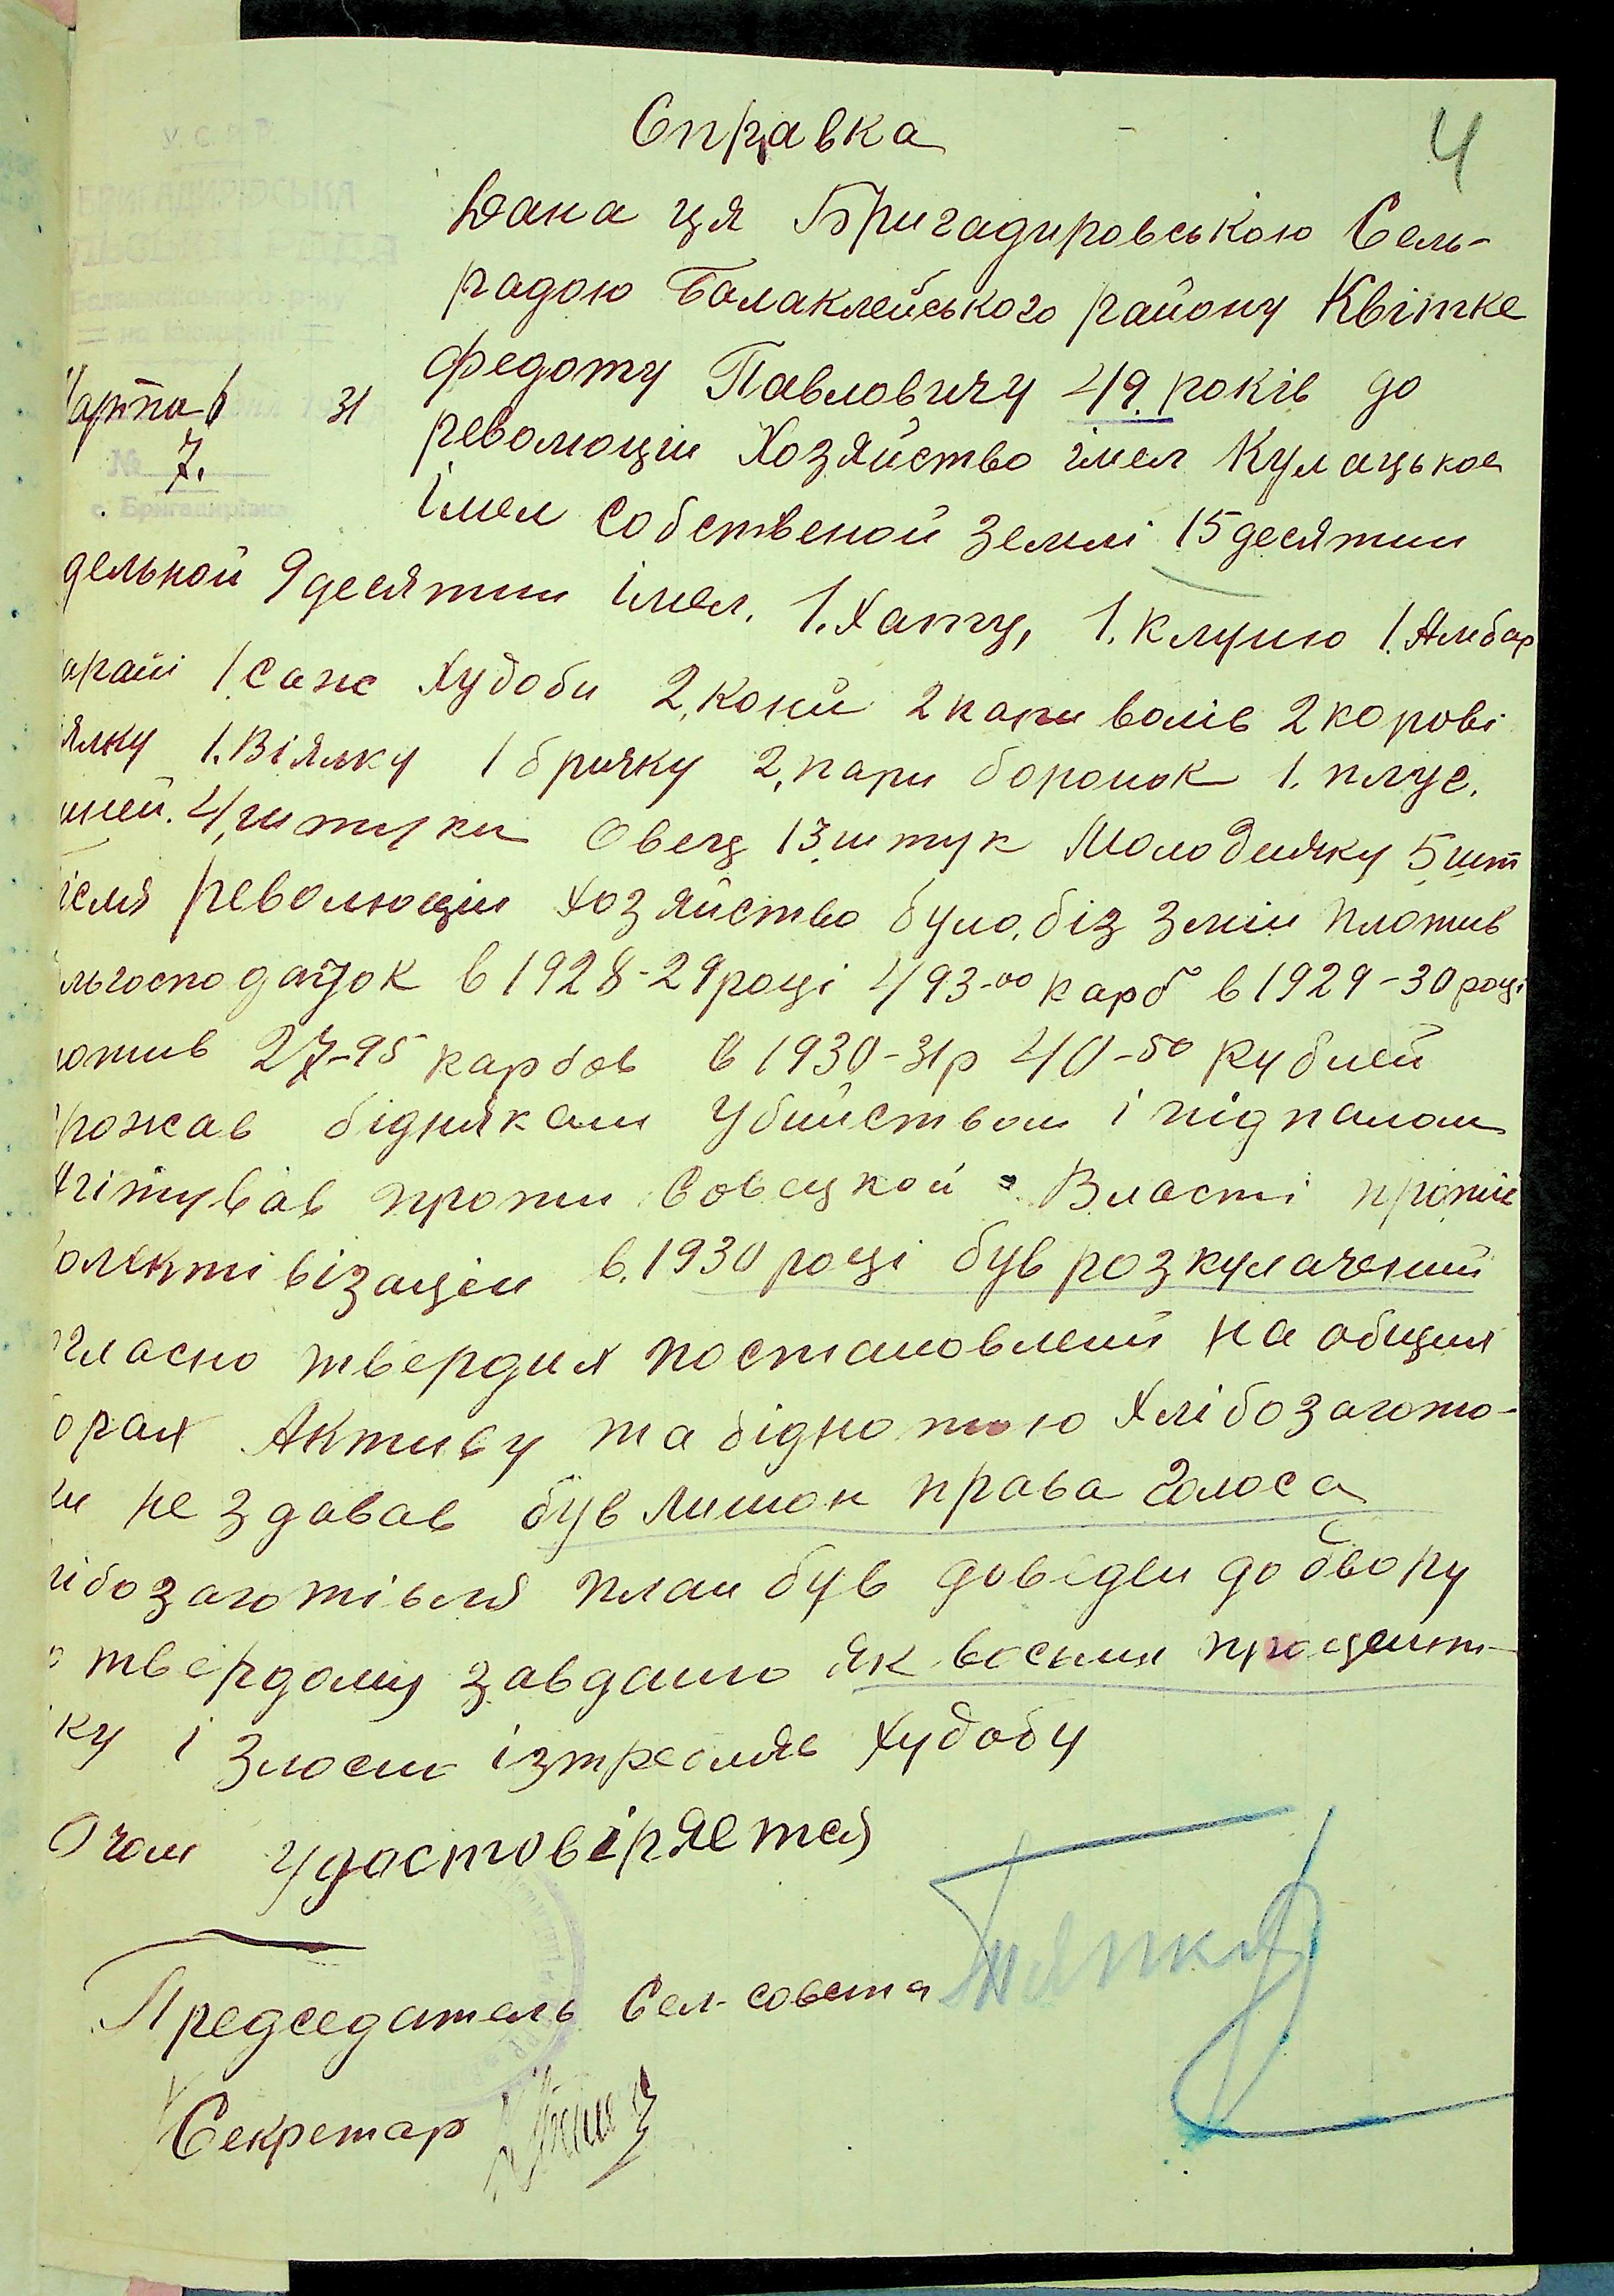 4
Справка
У.С.Р.Р.
БРИГАДИРІВСЬКА
Дана ця Бригадировською Сель-
радою Балаклейського району Квітке
Федоту Павловичу 49 років до
Марта 6 31
революціи Хозяйство імел Кулацькое
№ 7.
с. Бригадирівка
Імел Собственой Землі 15 десятин
дельной 9 десятин імел. 1. Хату, 1. Клуню 1. Амбар
араїі 1 Саж Худоби 2, Коний 2 пари волів 2 корові
ялку 1. Віялку 1 бричку 2, пари боронок 1. плуг.
иней. 4, штуки Овец 13 штук Молодняку 5 шт
ісля революціи хозяйство було, біз змін платив
льгосподаток в 1928-29 році 493-00 карб в 1929-30 році
латив 27-95 карбов в 1930-31 р 40-50 Рублей
грожав біднякам Убийством і підпалом
Агітував проти Совецкой Власті проти
олектівізаціи в. 1930 році був розкулачений
гласно твердих постановлений на общих
борах Активу та біднотою Хлібозагото-
ки не здавав був лишон права голоса
лібозаготівля план був доведен до двору
о твердому завданю як восьми процент-
ку і Злосно ізтребляв Худобу
О чом удостовіряется
Председатель Сел-совета
Секретар